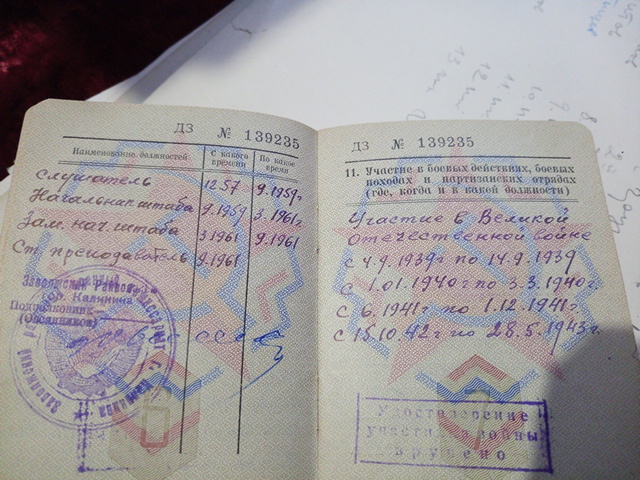 ДЗ № 139235
Наименование должностей
С какого времени
По какое время
Слушатель 12.57 9.1959г
Начальник штаба 9.1959 3.1961г
Зам. нач. штаба 3.1961 9.1961
Ст. преподаватель 9.1961
Заволжский
г. Калинина
Подполковник
(Овсянников)
ДЗ № 139235
11. Участие в боевых действиях, боевых
походах и партизанских отрядах
(где, когда и в какой должности)
Участие в Великой
Отечественной войне
с 4.9.1939г по 14.9.1939
с 1.01.1940г по 3.3.1940г.
с 6.1941г по 1.12.1941г.
с 15.10.42г по 28.5.1943г.
Удостоверение
участника войны
вручено